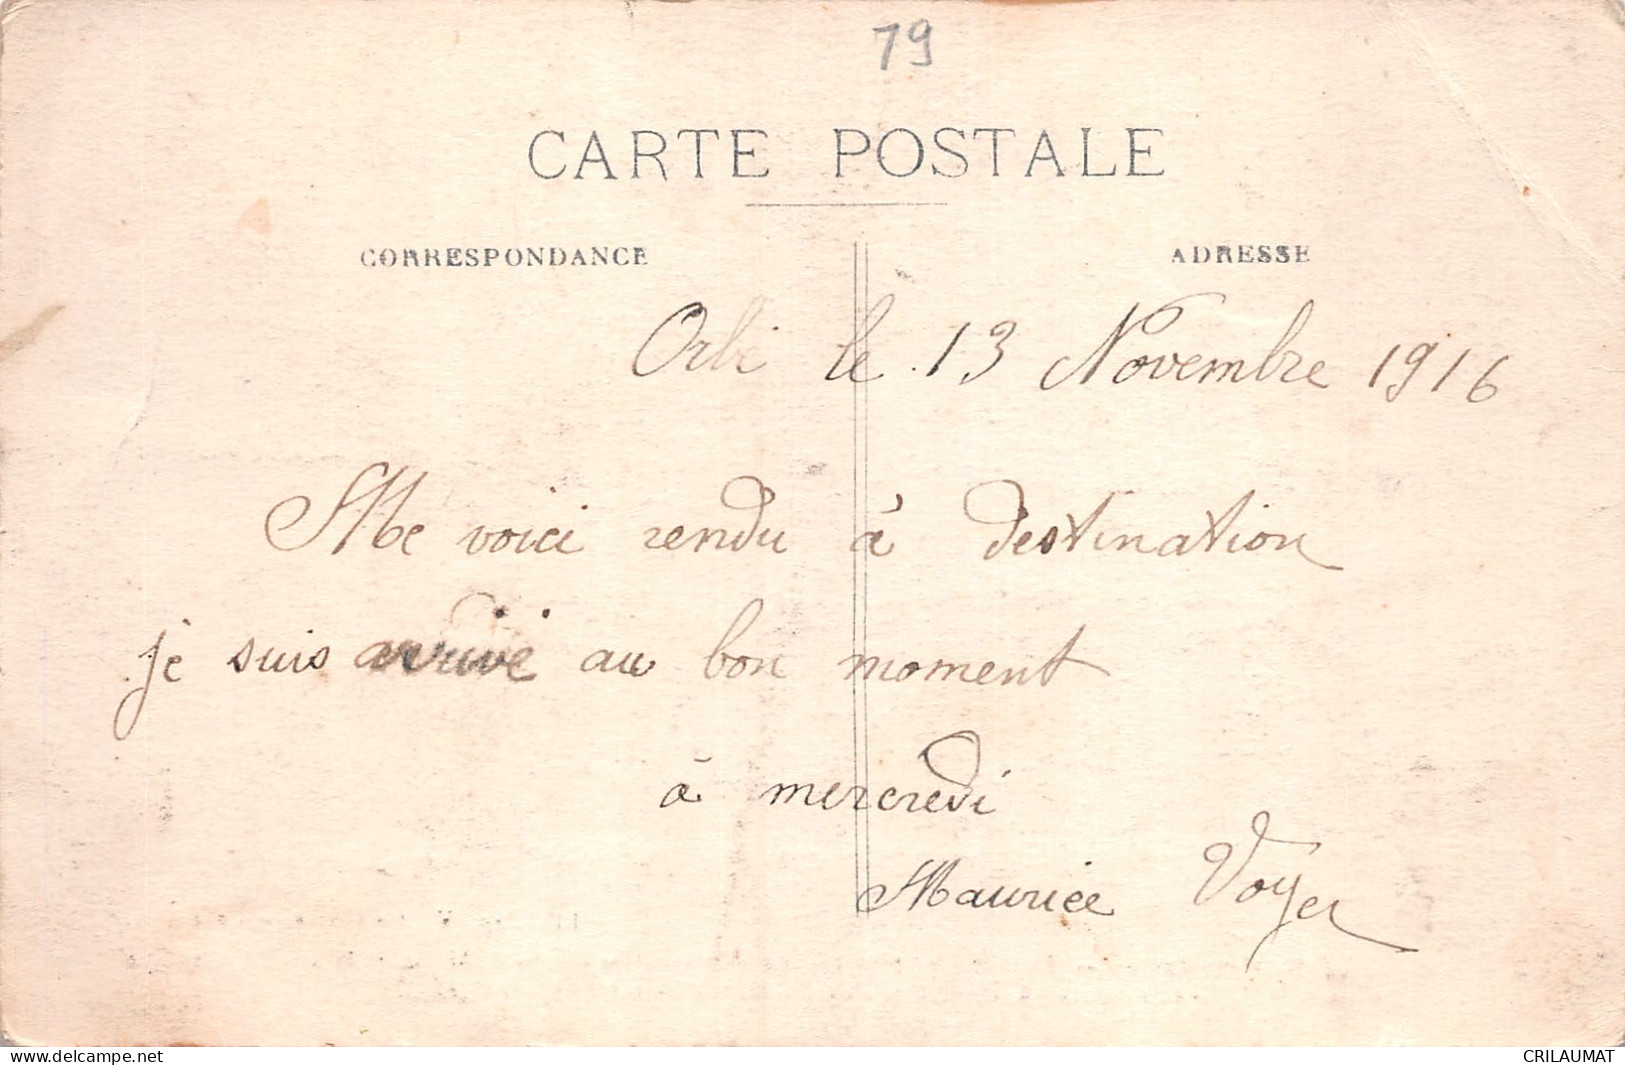 79
CARTE POSTALE
CORRESPONDANCE
ADRESSE
Orbi le 13 Novembre 1916
Me voici rendu à destination
je suis arrivé au bon moment
à mercredi
Maurice Voyer
www.delcampe.net
CRILAUMAT